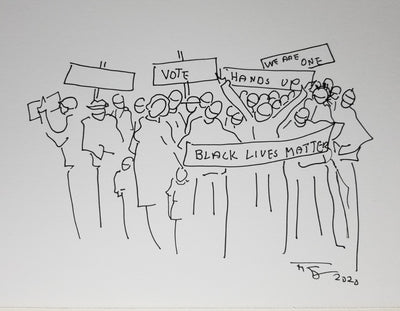 WE ARE ONE
VOTE
HANDS UP
BLACK LIVES MATTER
2020